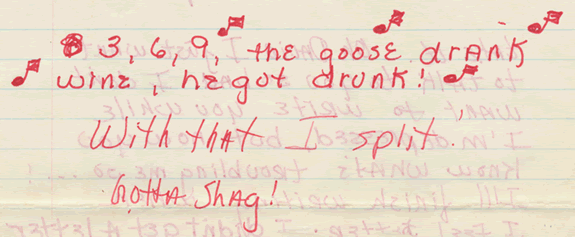 3, 6, 9, the goose drank
wine, he got drunk!
With that I split.
Gotta Shag!